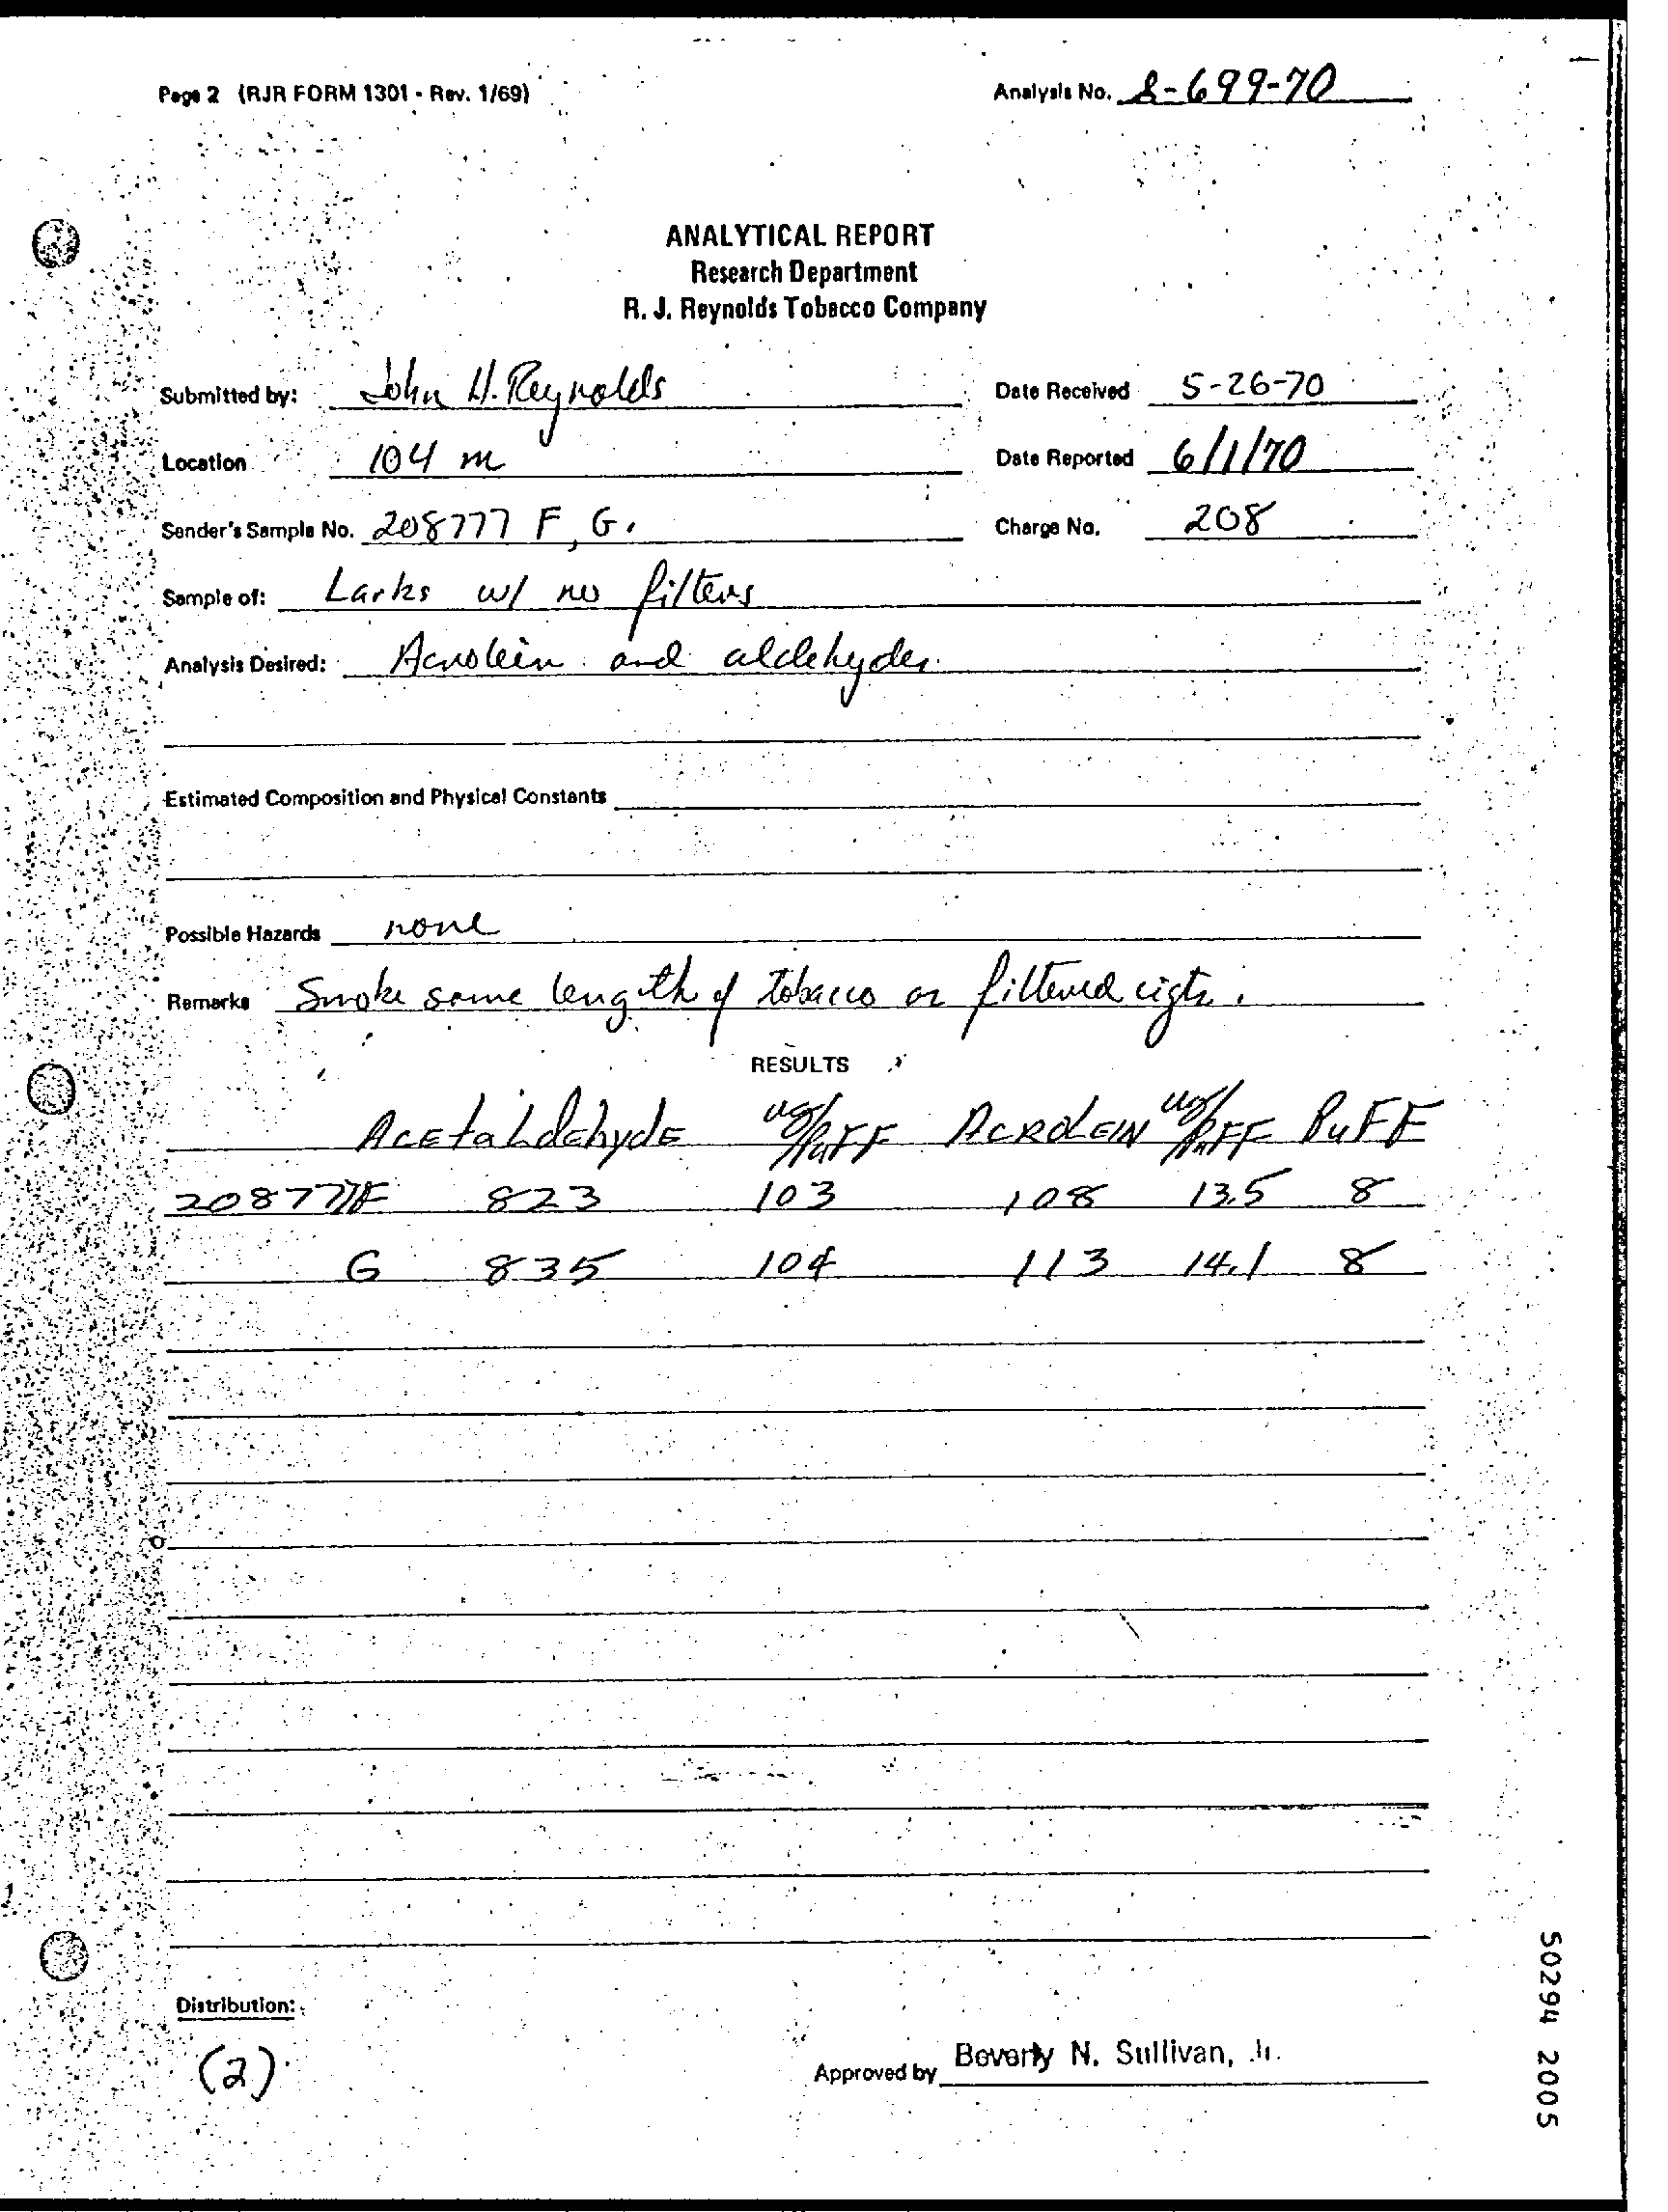 Page 2 (RJR FORM 1301 - Rev. 1/69)
Analysis No. S-699-70
ANALYTICAL REPORT
Research Department
R. J. Reynolds Tobacco Company
Submitted by: John H. Reynolds
Date Received 5-26-70
Location 104 m
Date Reported 6/1/70
Sender's Sample No. 208777 F, G.
Charge No. 208
Sample of: Larks w/ no filters
Analysis Desired: Acrolein and aldehydes.
Estimated Composition and Physical Constants
Possible Hazards none
Remarks Smoke same length of tobacco as filtered cigts.
RESULTS
AcetaLdehydE ug/PuFF ACROLEIN ug/PuFF PuFF
208777F 823 103 108 13.5 8
G 835 104 113 14.1 8
Distribution:
(2)
Approved by Beverly N. Sullivan, Jr.
50294 2005